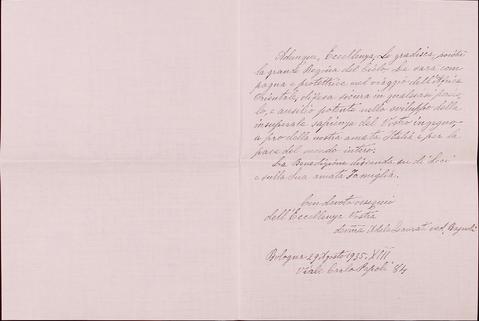 Adunque, Eccellenza, La gradisca, poichè
la grande Regina del Cielo, Le sarà com-
pagna e protettrice nel viaggio dell'Africa
Orientale, difesa sicura in qualsiasi perico-
lo, e ausilio potente nello sviluppo della
insuperata sapienza del Vostro ingegno,
a pro della nostra amata Italia e per la
pace del mondo intero.
La Benedizione discenda su di Loei
e sulla Sua amata Famiglia.
Con devoto ossequio
dell'Eccellenza Vostra
Adele ved.
Bologna 29 Agosto 1935-XIII
Viale Carlo Pepoli 84